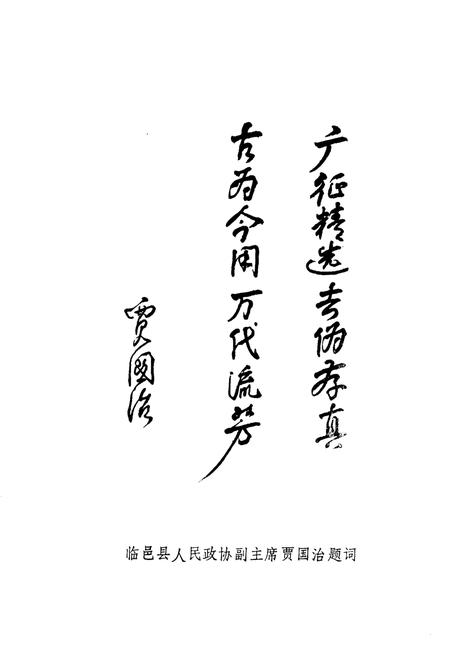 广征精选去伪存真
古为今用万代流芳
贾国治
临邑县人民政协副主席贾国治题词